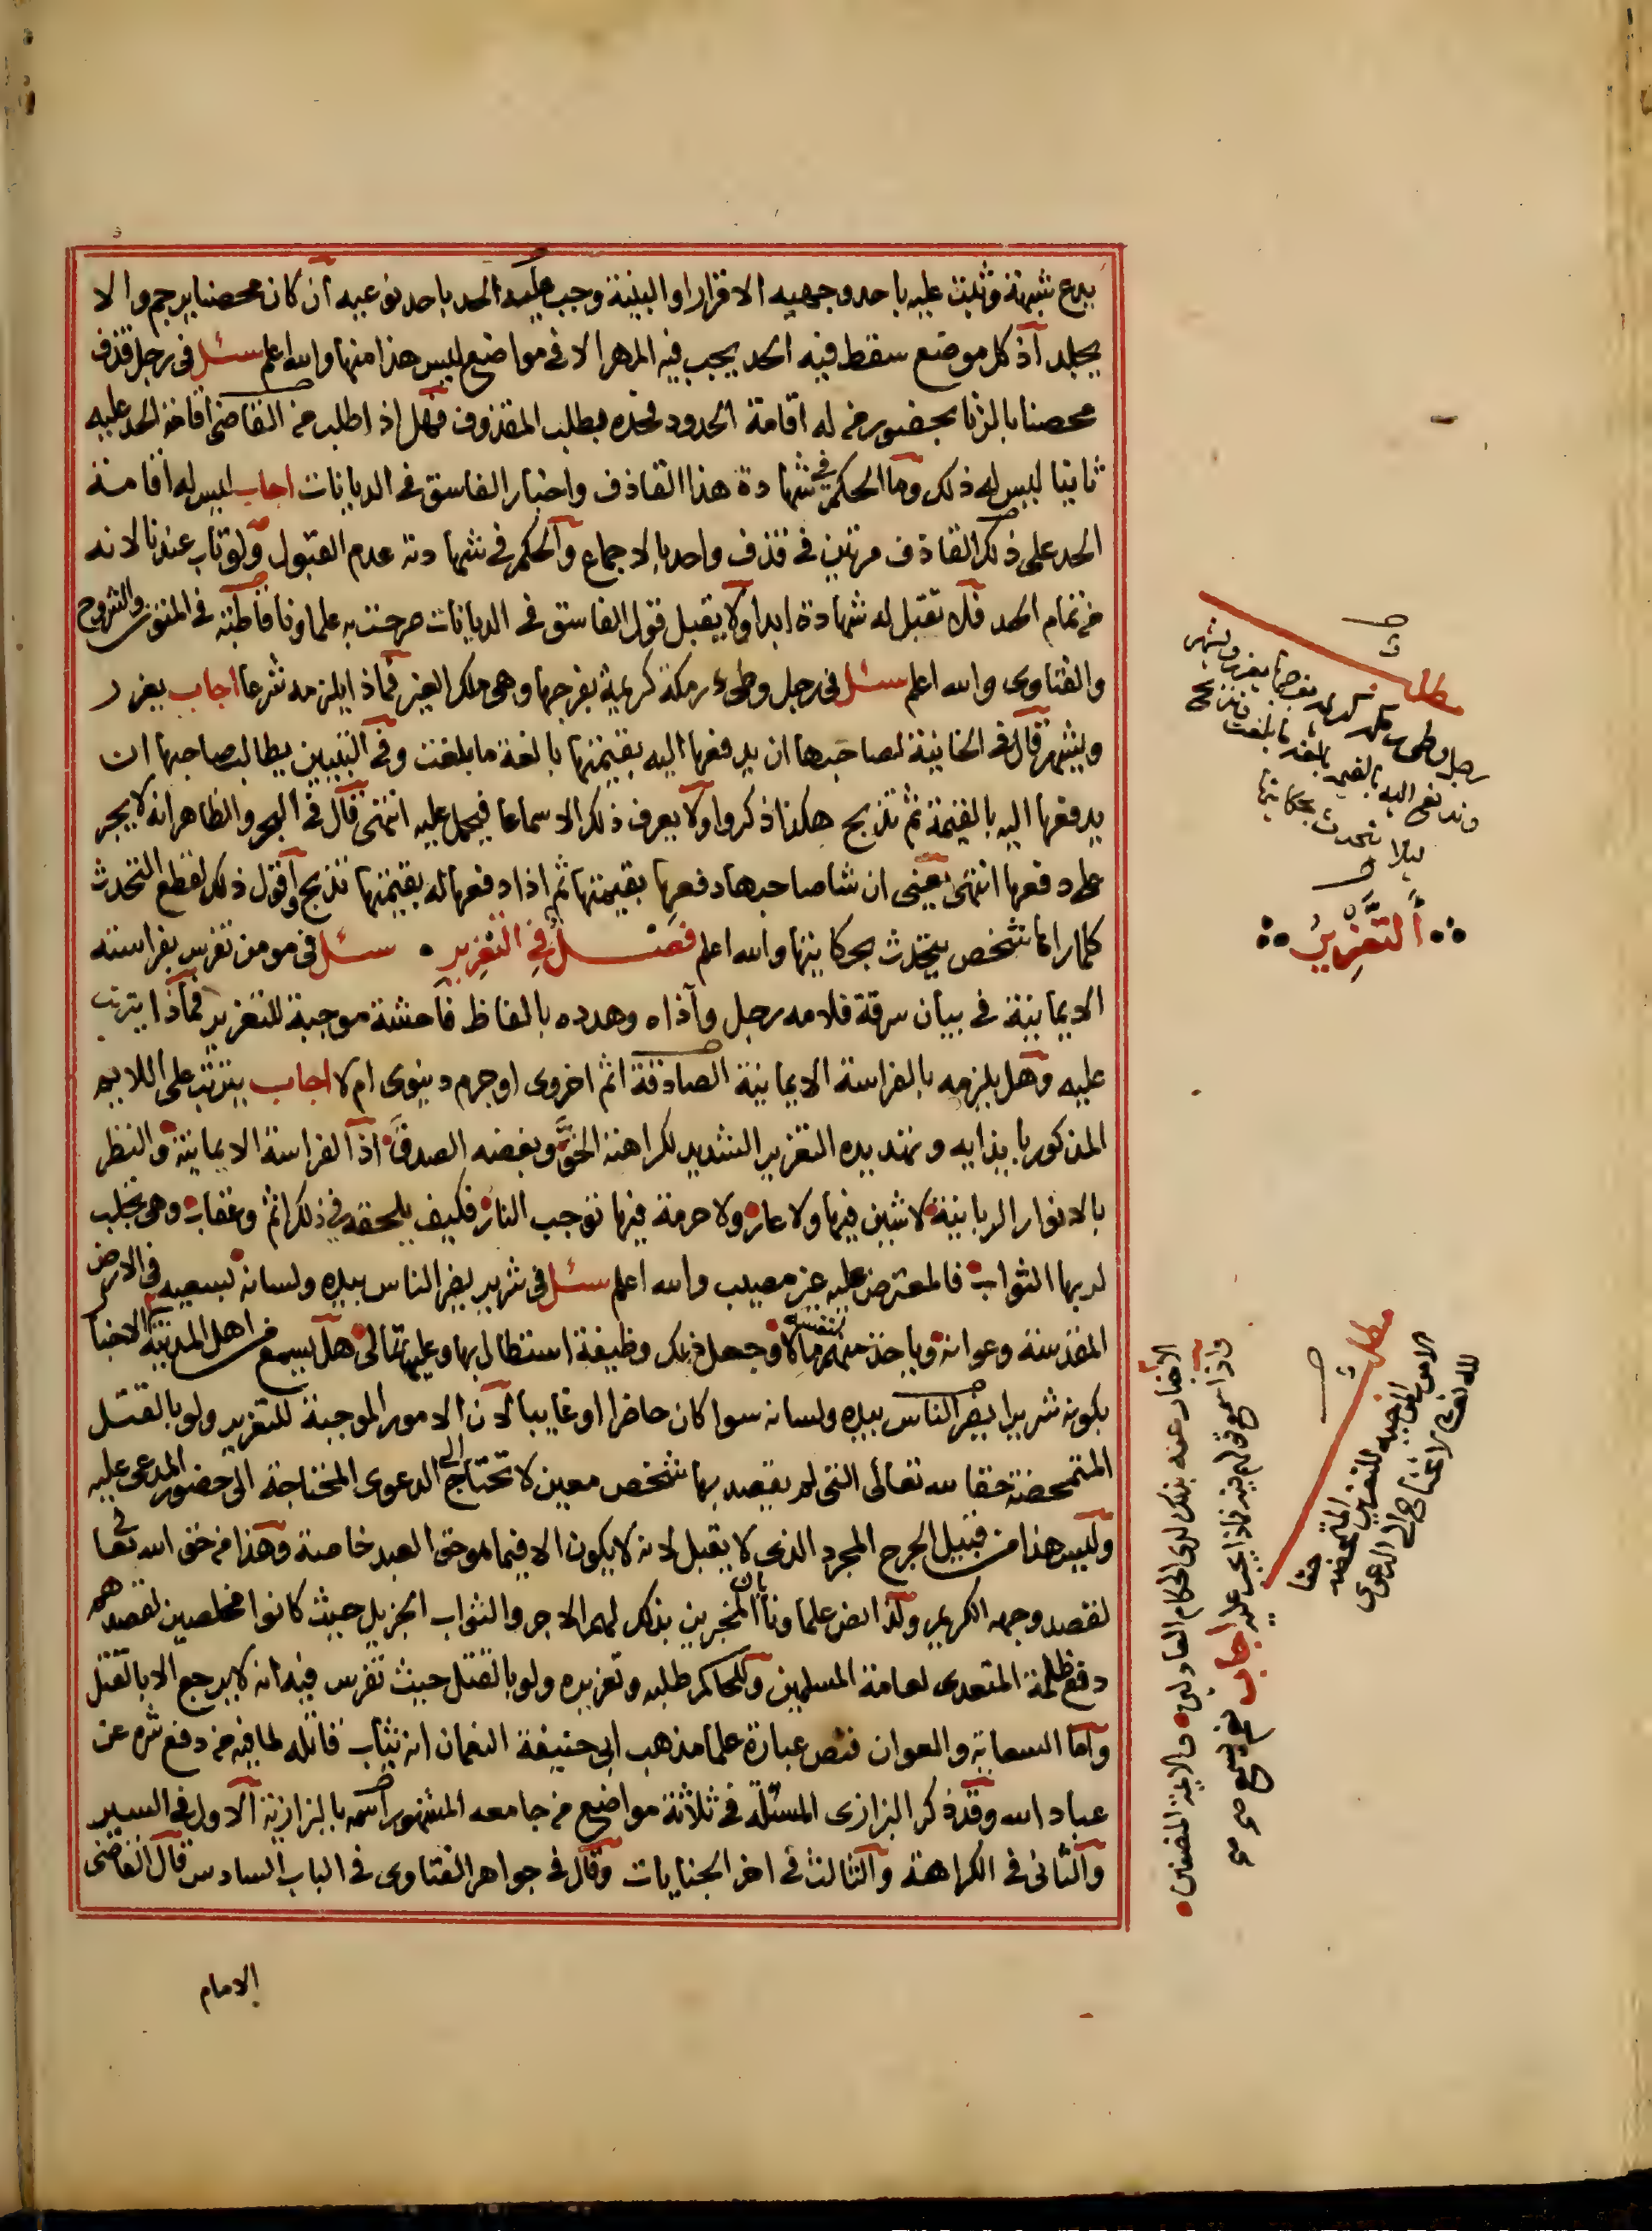 يدع شبهة وثبت عليه باحد وجهيه الاقرار او البينة وجب عليه الحد باحد نوعيه ان كان محصنا يرجم والا
يجلد اذ كل موضع سقط فيه الحد يجب فيه المهر الا في مواضع ليس هذا منها والله اعلم سئل في رجل قذف
محصنا بالزنا بحضور من له اقامة الحدود فحده بطلب المقذوف فهل اذا طلب من القاضي اقامة الحد عليه
ثانيا ليس له ذلك وما الحكم في شهادة هذا القاذف واخبار الفاسق في الديانات اجاب ليس له اقامة
الحد على ذلك القاذف مرتين في قذف واحد بالاجماع والحكم في شهادته عدم القبول ولو تاب عندنا لانه
من تمام الحد فلا تقبل له شهادة ابدا ولا يقبل قول الفاسق في الديانات صرحت به علماونا قاطبة في المتون والشروح
والفتاوى والله اعلم سئل في رجل وطىء رمكة كريمية بفرجها وهي ملك الغير فماذا يلزمه شرعا اجاب يعزر
ويشهر قال في الخانية لصاحبها ان يدفعها اليه بقيمتها بالغة ما بلغت وفي التبيين يطالب صاحبها ان
يدفعها اليه بالقيمة ثم تذبح هكذا ذكروا ولا يعرف ذلك الا سماعا فيحمل عليه انتهى قال في البحر والظاهر انه لا يجبر
على دفعها انتهى يعني ان شا صاحبها دفعها بقيمتها ثم اذا دفعها له بقيمتها تذبح واقول ذلك لقطع التحدث
كلما راها شخص يتحدث بحكايتها والله اعلم فصل في التعزير سئل في مومن تفرس بفراسته
الايمانية في بيان سرقة فلامه رجل وآذاه وهدده بالفاظ فاحشة موجبة للتعزير فماذا يترتب
عليه وهل يلزمه بالفراسة الايمانية الصادقة اثم اخروى او جرم دنيوى ام لا اجاب يترتب على اللايم
المذكور بايذايه وتهديده التعزير الشديد لكراهته الحق وبغضه الصدق اذ الفراسة الايمانية والنظر
بالانوار الربانية لا شين فيها ولا عار ولا حرمة فيها توجب النار فكيف يلحقه في ذلك اثم وعقاب وهي تجلب
لربها الثواب فالمعترض عليه غير مصيب والله اعلم سئل في شرير يضر الناس بيده ولسانه بسعيه في الارض
المقدسة وعوانه وياخذ منهم مالا لنفسه وجعل ذلك وظيفة استطال بها وعليهم تمالى هل يسمع من اهل المدينة الاخبا
بكونه شريرا يضر الناس بيده ولسانه سوا كان حاضرا او غايبا لان الامور الموجبة للتعزير ولو بالقتل
المتمحضة حقا لله تعالى التى لم يقصد بها شخص معين لا تحتاج الى الدعوى المحتاجة الى حضور المدعى عليه
وليس هذا من قبيل الجرح المجرد الذى لا يقبل لانه لا يكون الا فيما هو حق العبد خاصة وهذا من حق الله تعا
لقصد وجهه الكريم ولذا نص علماونا بان المخبرين بذلك لهم الاجر والثواب الجزيل حيث كانوا مخلصين لقصدهم
دفع ظلمة المتعدى لعامة المسلمين وللحاكم طلبه وتعزيره ولو بالقتل حيث تفرس فيه انه لا يرجع الا بالقتل
واما السعاية والعوان فنص عبارة علما مذهب ابي حنيفة النعمان انه يثاب قاتله لما فيه من دفع شره عن
عباد الله وقد ذكر البزازى المسئلة في ثلاثة مواضع من جامعه المشهور اسمه بالبزازية الاول في السير
والثانى في الكراهة والثالث في اخر الجنايات وقال في جواهر الفتاوى في الباب السادس قال القاضي
الامام
مطلب
رجل وطى رمكة كريمية بفرجها يعزر ويشهر
وتدفع اليه بالقيمة بالغة ما بلغت وتذبح
ليلا تتحدث بحكايتها
التعزير
مطلب
الامور الموجبة للتعزير المتمحضة حقا
لله تعالى لا تحتاج الى الدعوى
الاخبار عنه بذلك لدى الحكام العادلين والايمة المنصفين
واذا سمع قولهم فيه فماذا يجب عليه اجاب نعم يسمع